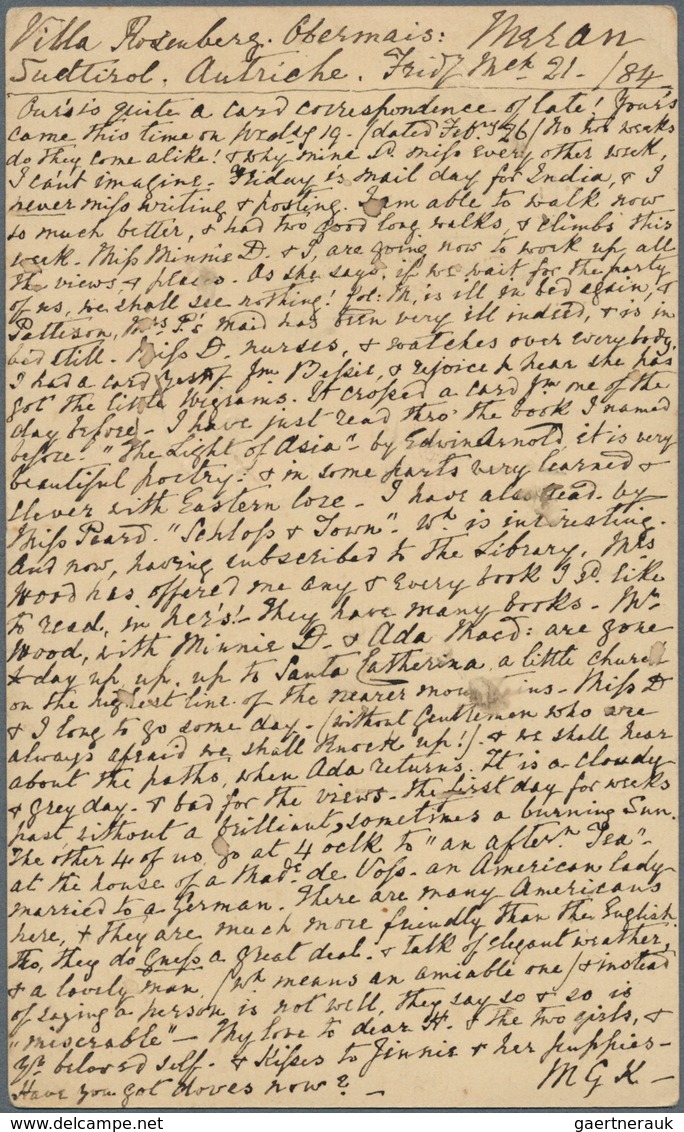 Villa Rosenberg. Obermais: Meran
Sudtirol. Autriche. Fridy Mch 21 - /84
Ours is quite a card correspondence of late! Your's
came this time on Wedsdy 19 - (dated Feby 26) No two weeks
do they come alike! & why mine sd. miss every other week,
I can't imagine - Friday is mail day for India, & I
never miss writing & posting. I am able to walk now
so much better, & had two good long walks, & climbs this
week. Miss Minnie D. & I, are going now to work up all
the views, & places. As she says, if we wait for the party
of us, we shall see nothing! Jol: M, is ill in bed again, &
Pattison, Mrs P's maid has been very ill indeed, & is in
bed still. Miss D. nurses, & watches over everybody.
I had a card yesty fm Bessie, & rejoice to hear she has
got the little Wigrams. It crossed a card fm me of the
day before - I have just read thro' the book I named
before - "The Light of Asia" - by Edwin Arnold, it is very
beautiful poetry: & in some parts very learned &
clever with Eastern lore - I have also read - by
Miss Peard - "Schloss & Town" - wh is interesting.
And now, having subscribed to the Library, Mrs
Wood has offered me any & every book I sd. like
to read, in her's! - They have many books - Mr
Wood, with Minnie D - & Ada Macd: are gone
to day up, up, up to Santa Catherina, a little church
on the highest line of the nearer mountains - Miss D
& I long to go some day - (without Gentlemen who are
always afraid we shall knock up!) - & we shall hear
about the paths, when Ada returns. It is a cloudy
& grey day - & bad for the views - the first day for weeks
past, without a brilliant, sometimes a burning Sun.
The other 4 of us, go at 4 oclk to "an aftern Tea" -
at the house of a Made de Voss - an American lady
married to a German. There are many Americans
here, & they are much more friendly than the English.
tho, they do guess a great deal - & talk of elegant weather,
& a lovely man, (wh means an amiable one) & instead
of saying a person is not well, they say so & so is
"miserable" - My love to dear H. & the two girls, &
yr beloved self - & Kisses to Jinnie & her puppies -
Have you got doves now? - M G K -
gaertnerauk